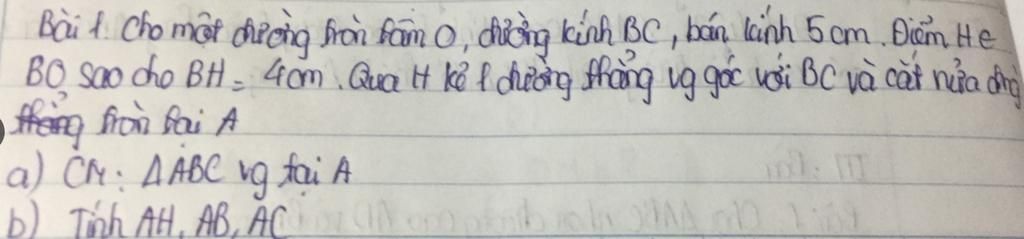 Bài 1. Cho một đường tròn tâm O, đường kính BC, bán kính 5 cm. Điểm H ∈
BO sao cho BH = 4cm. Qua H kẻ 1 đường thẳng vg góc với BC và cắt nửa đng
tròn tại A
a) CM: Δ ABC vg tại A
b) Tính AH, AB, AC